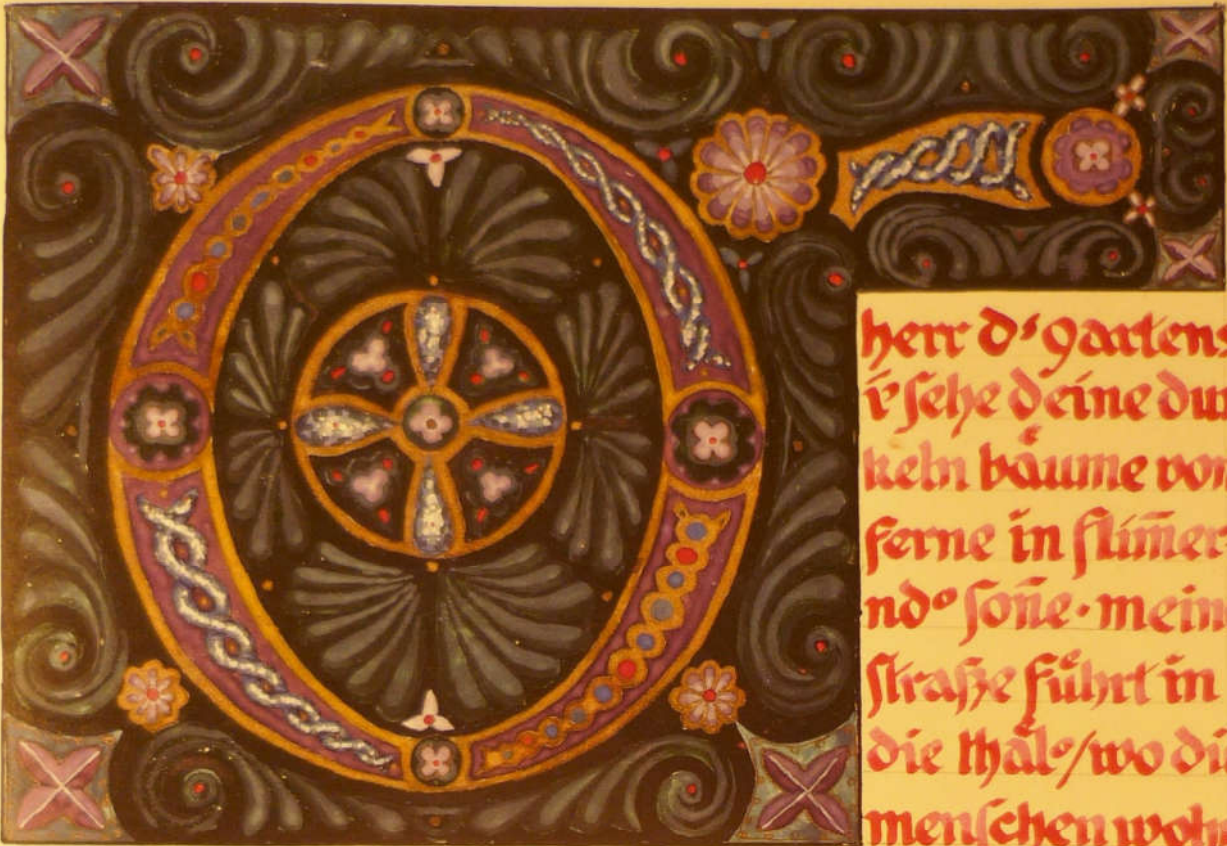 O
herr d' gartens
i sehe deine dun
keln bäume von
ferne in flim̄er
nd° son̄e · mein
straße führt in
die thäl°/wo di
menschen wohn